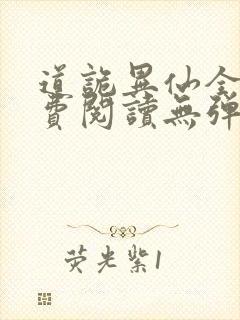 道詭異仙全
費閱讀無彈
荧光紫1